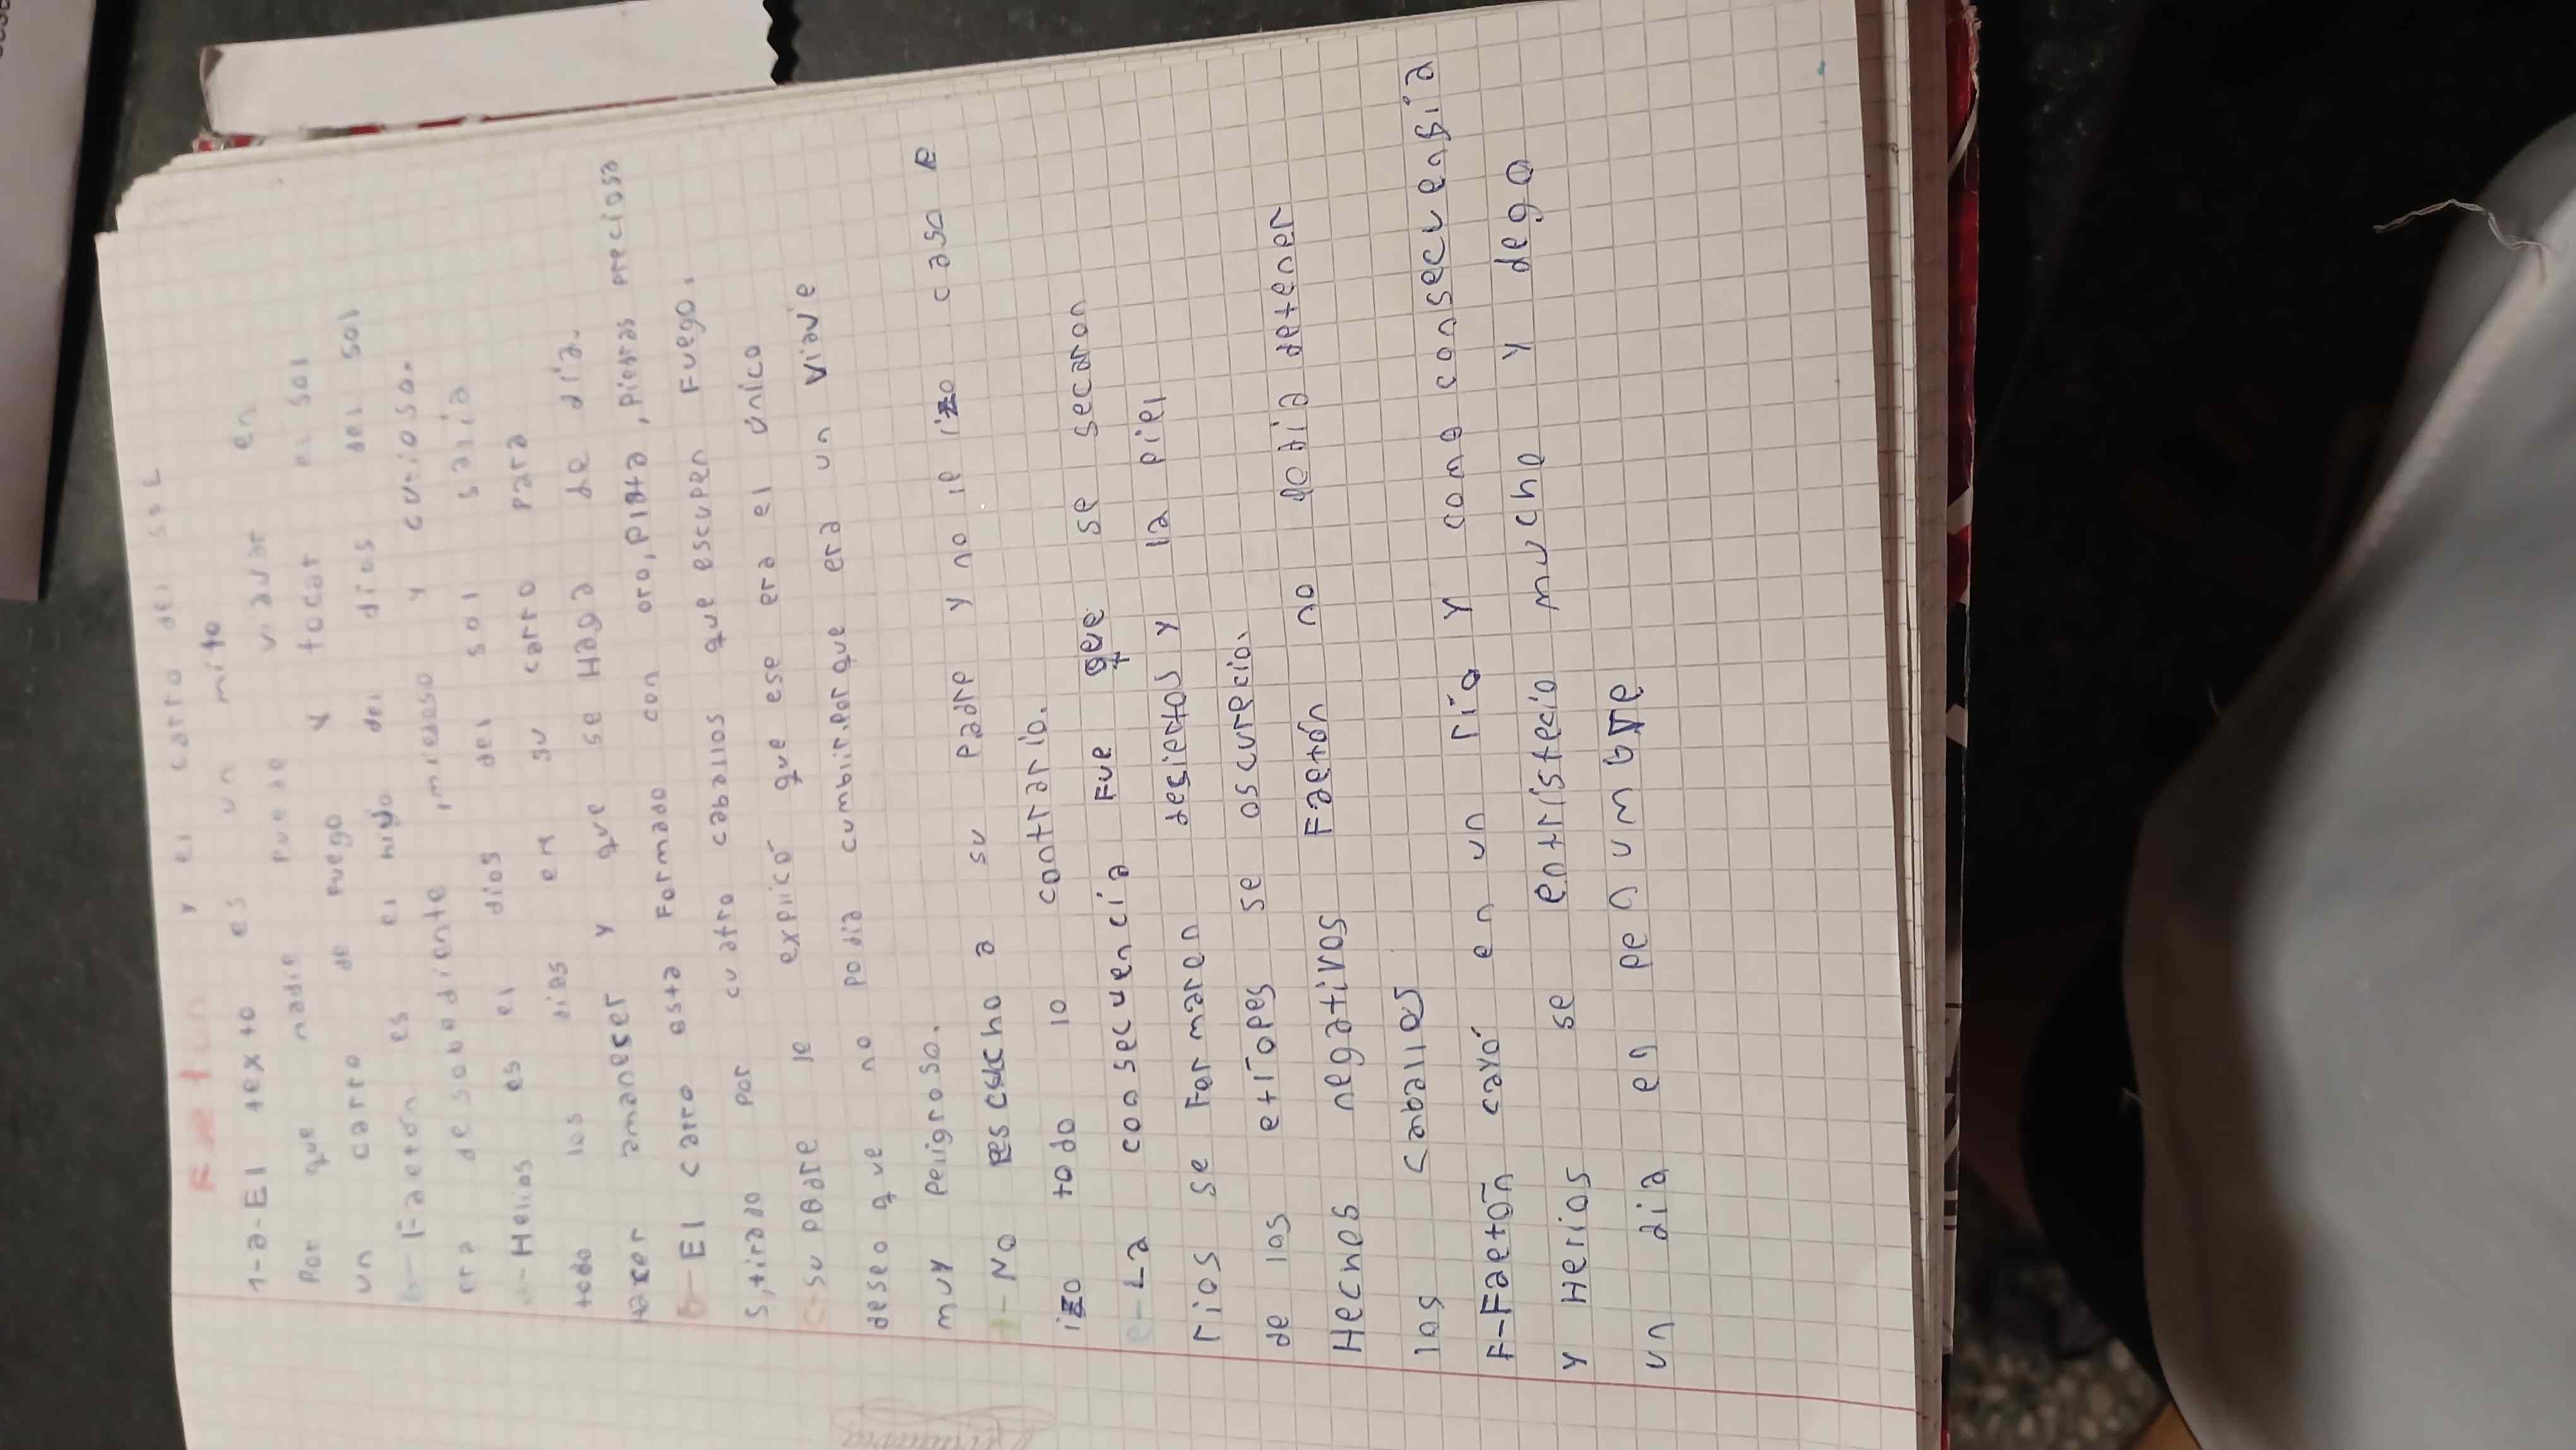 Faetón y el carro del sol
1-a-El texto es un mito
Por que nadie puede viavar en
un carro de fuego y tocar el sol
b-Faetón es el hijo del dios del sol
era desobodiente imiedoso y curioso.
a-Helios es el dios del sol salia
todo los dias en su carro para
hacer amaneser y que se Haga de dia.
b-El carro esta Formado con oro, plata, piedras preciosa
s, tirado por cuatro caballos que escupen Fuego.
c-su padre le explicó que ese era el único
deseo que no podia cumblir. Por que era un Viavie
muy peligroso.
d-No escucho a su padre y no le izo caso e
izo todo lo contrario.
e-La consecuencia Fue que se secaron
rios se Formaren desiertos y la piel
de los etiopes se oscurecio.
Hechos negativos Faetón no podia detener
los caballos
F-Faetón cayó en un río y como consecuengia
y Helios se entristecio mucho y dego
un dia en penumbra